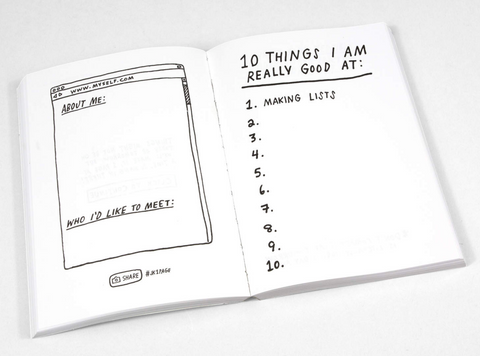 WWW.MYSELF.COM
ABOUT ME:
WHO I'D LIKE TO MEET:
SHARE
10 THINGS I AM
REALLY GOOD AT:
1. MAKING LISTS
2.
3.
4.
5.
6.
7.
8.
9.
10.